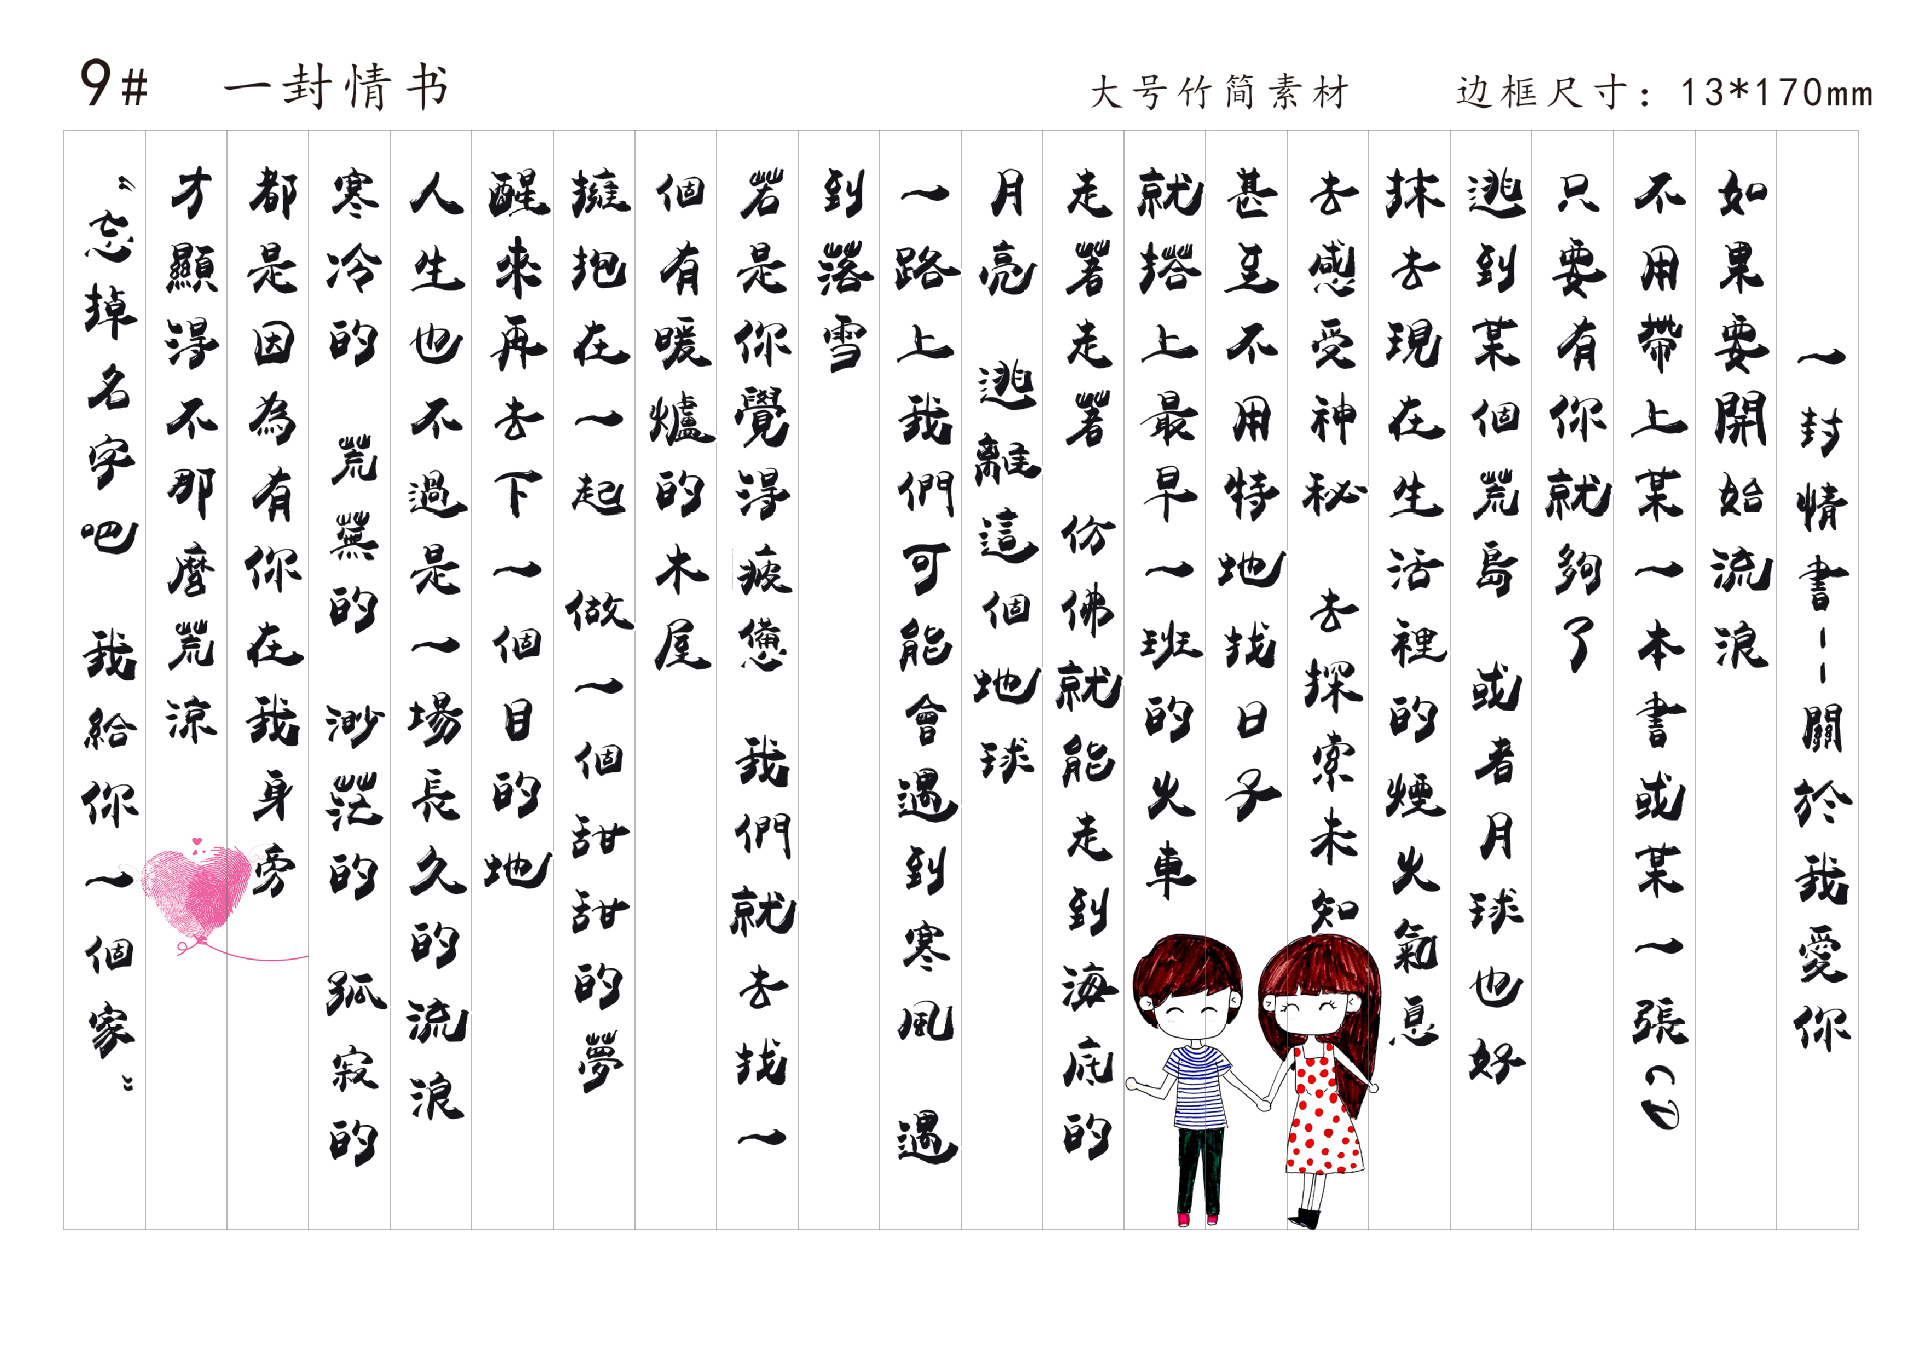 9# 一封情书
大号竹简素材 边框尺寸：13*170mm
一封情書——關於我愛你
如果要開始流浪
不用帶上某一本書或某一張CD
只要有你就夠了
逃到某個荒島 或者月球也好
抹去現在生活裡的煙火氣息
去感受神秘 去探索未知
甚至不用特地找日子
就搭上最早一班的火車
走著走著 仿佛就能走到海底的
月亮 逃離這個地球
一路上我們可能會遇到寒風 遇
到落雪
若是你覺得疲憊 我們就去找一
個有暖爐的木屋
擁抱在一起 做一個甜甜的夢
醒來再去下一個目的地
人生也不過是一場長久的流浪
寒冷的 荒蕪的 渺茫的 孤寂的
都是因為有你在我身旁
才顯得不那麼荒涼
“忘掉名字吧 我給你一個家”